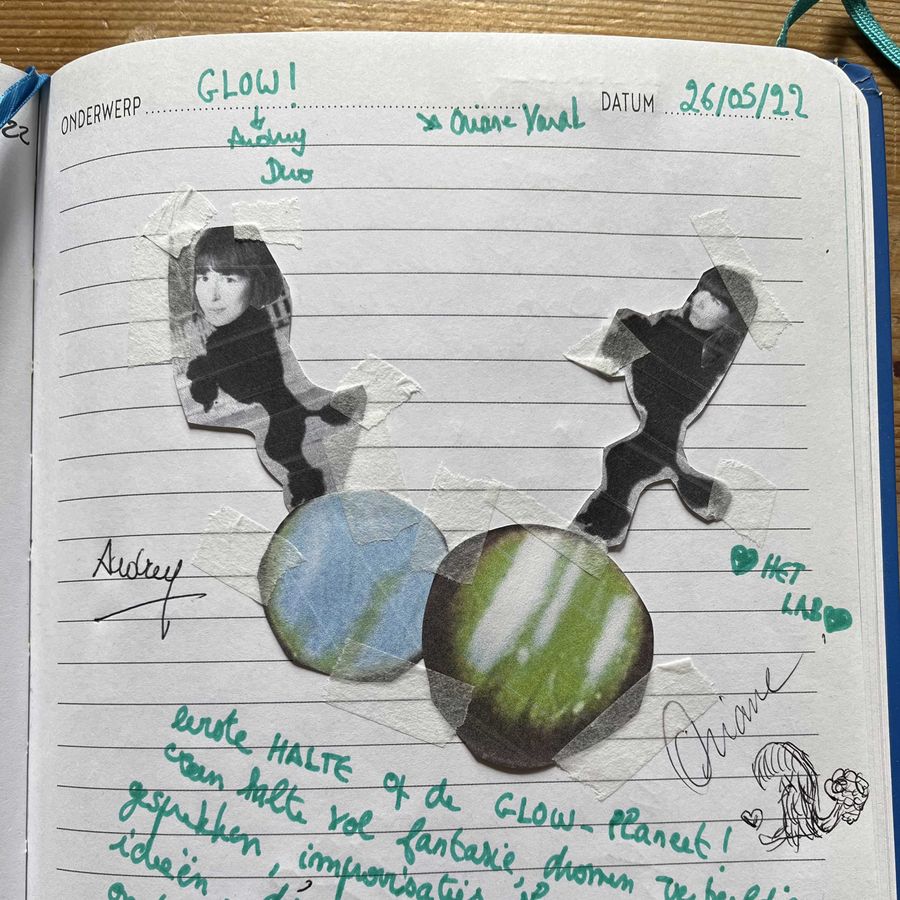 22
GLOW!
ONDERWERP
DATUM 26/05/22
Audrey
Duo
Oriane
Audrey
HET
LAB
Oriane
eerste HALTE op de GLOW-PLANEET!
een halte vol fantasie, dromen
gesprekken, improvisaties,
ideeën